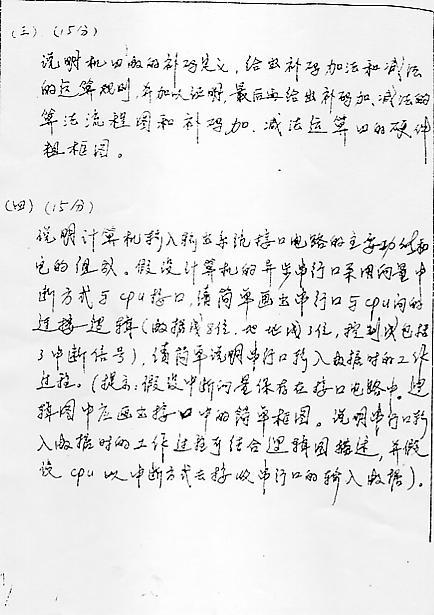 (三) (15分)
说明机中数的补码定义，给出补码加法和减法
的运算规则，并加以证明，最后再给出补码加、减法的
算法流程图和补码加、减法运算的硬件
粗框图。
(四) (15分)
说明计算机输入输出系统接口电路的主要功能和
它的组成。假设计算机的异步串行口采用向量中
断方式与cpu接口，请简单画出串行口与cpu间的
连接逻辑(数据线8位，地址线3位，控制线包括
了中断信号)，请简单说明串行口输入数据时的工作
过程。(提示：假设中断向量保存在接口电路中。逻
辑图中应画出接口中的简单框图。说明串行口输
入数据时的工作过程可结合逻辑图描述，并假
设cpu以中断方式去接收串行口的输入数据)。